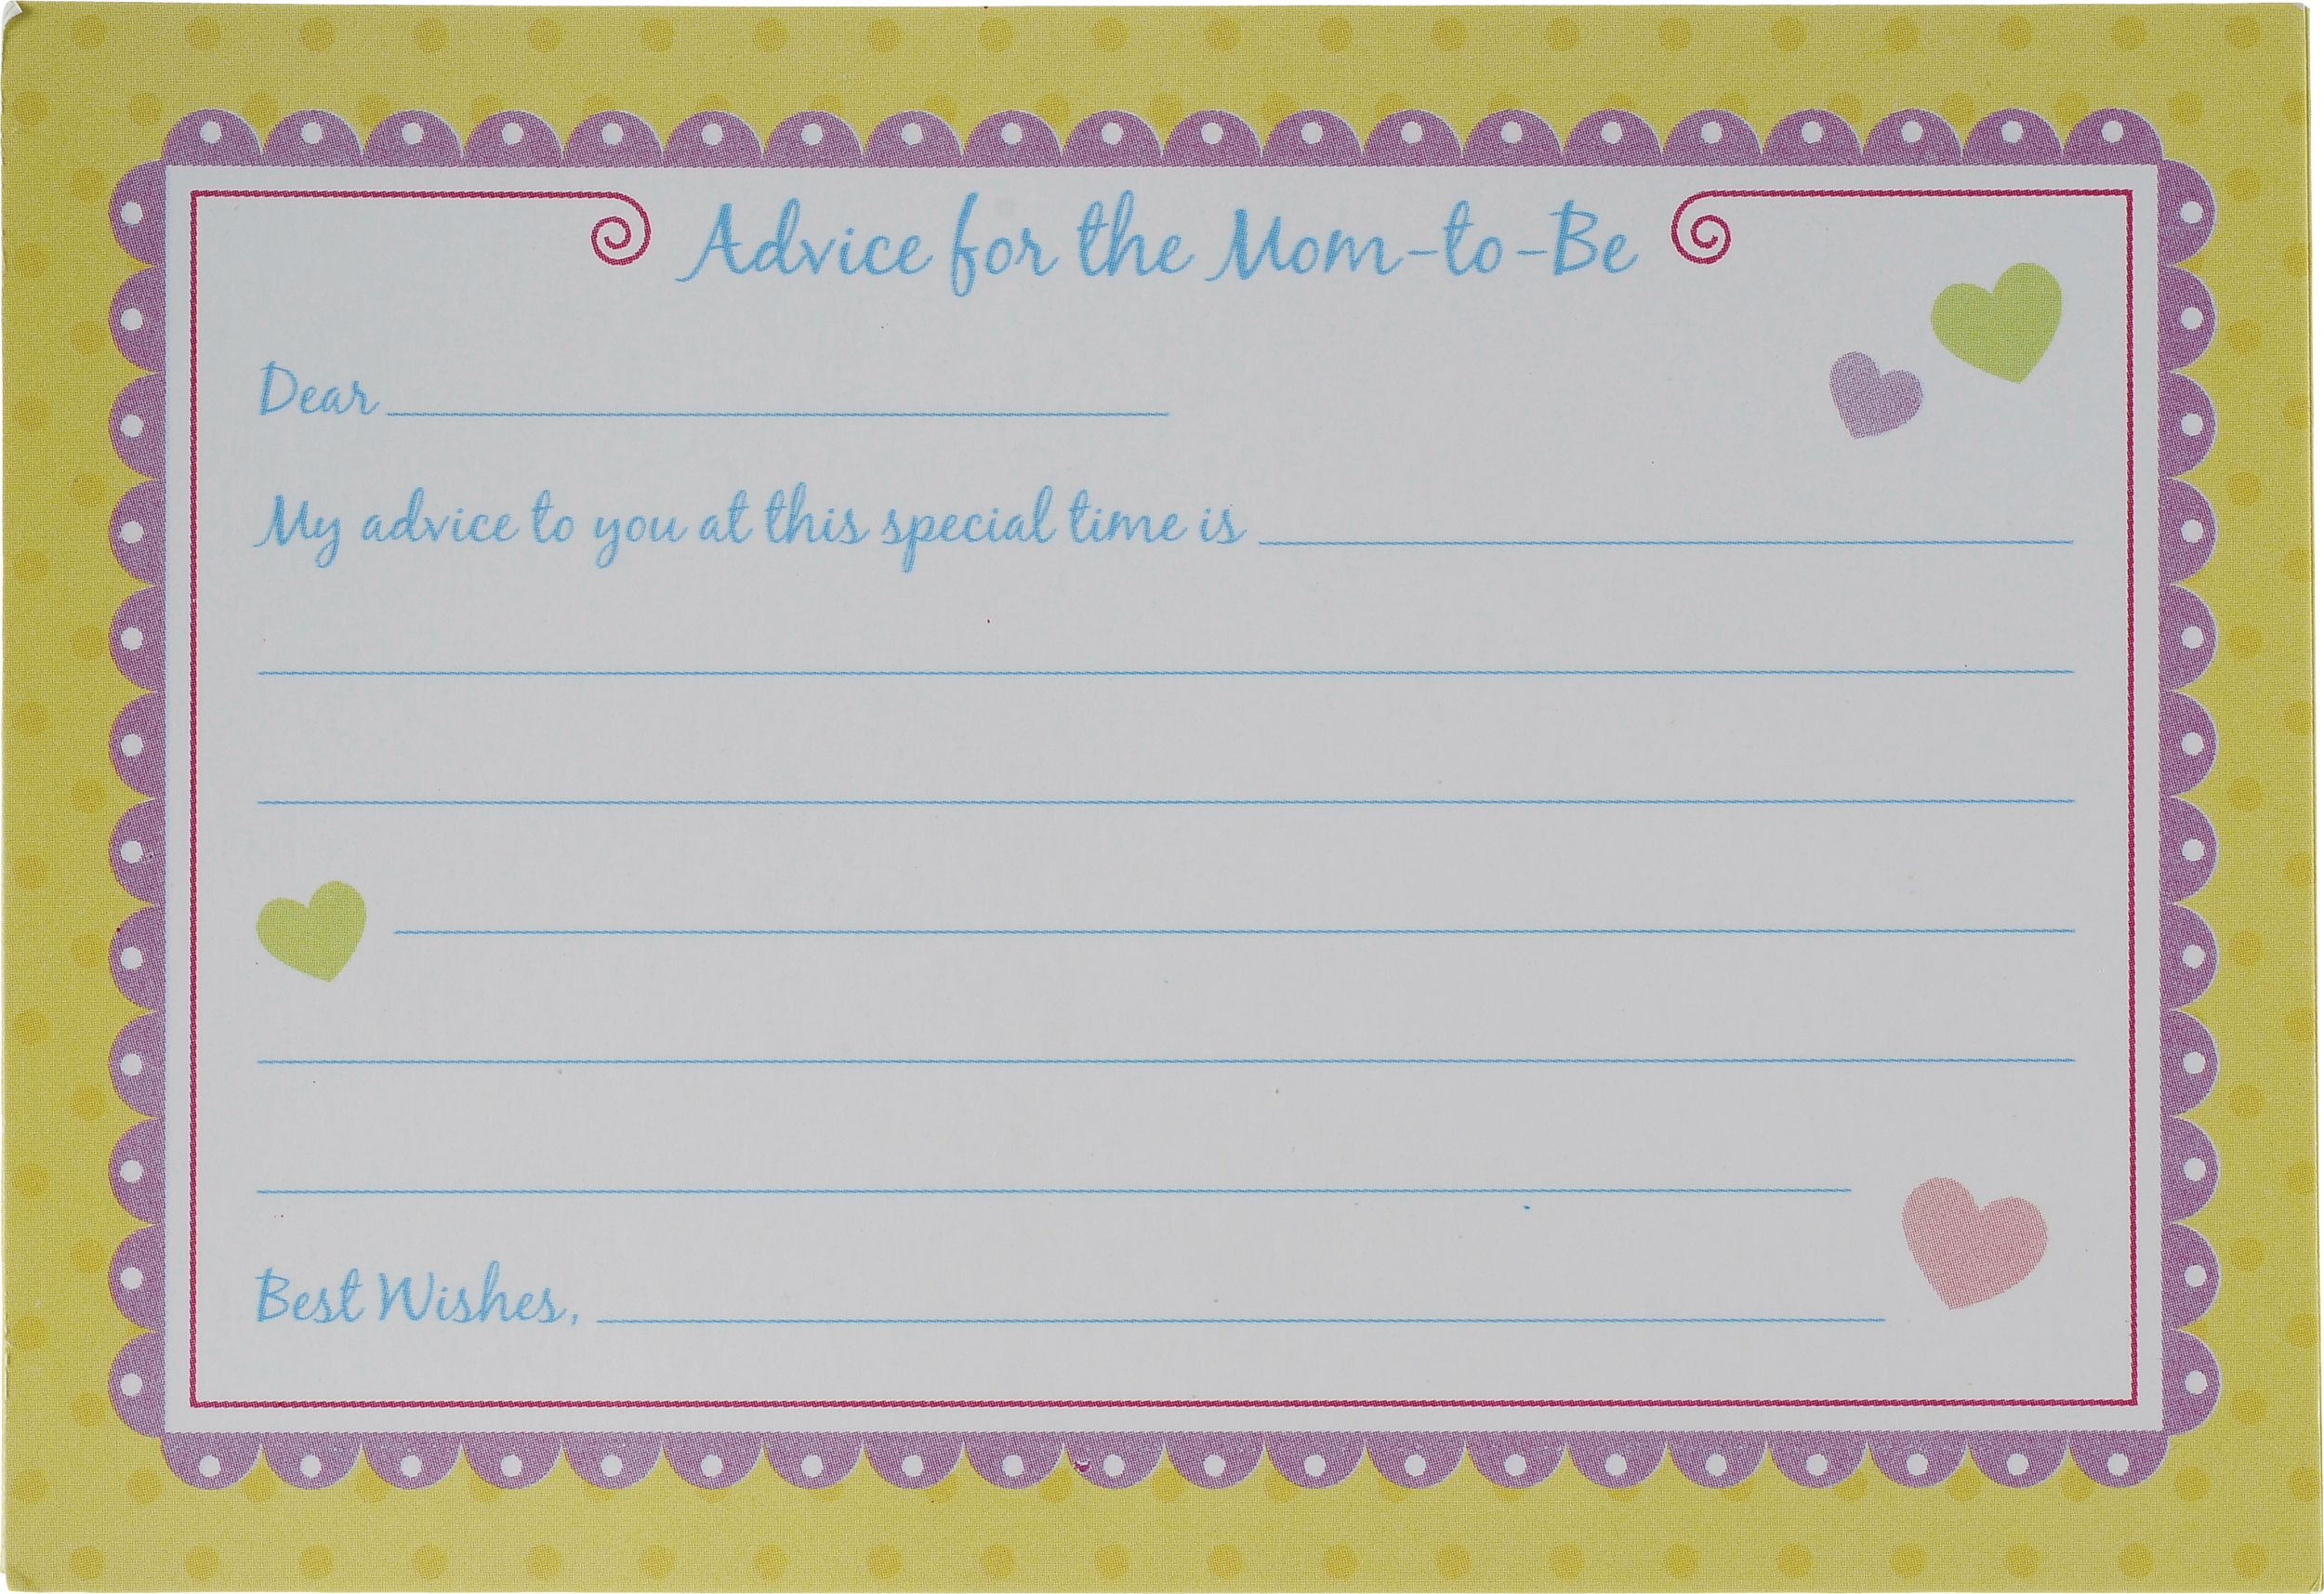 Advice for the Mom-to-Be
Dear
My advice to you at this special time is
Best Wishes,